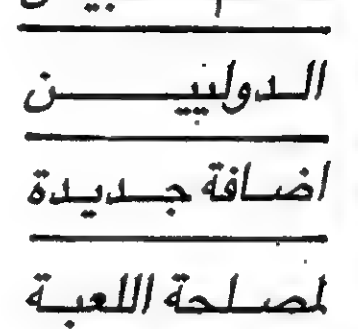 الدوليين
اضافة جديدة
لمصلحة اللعبة